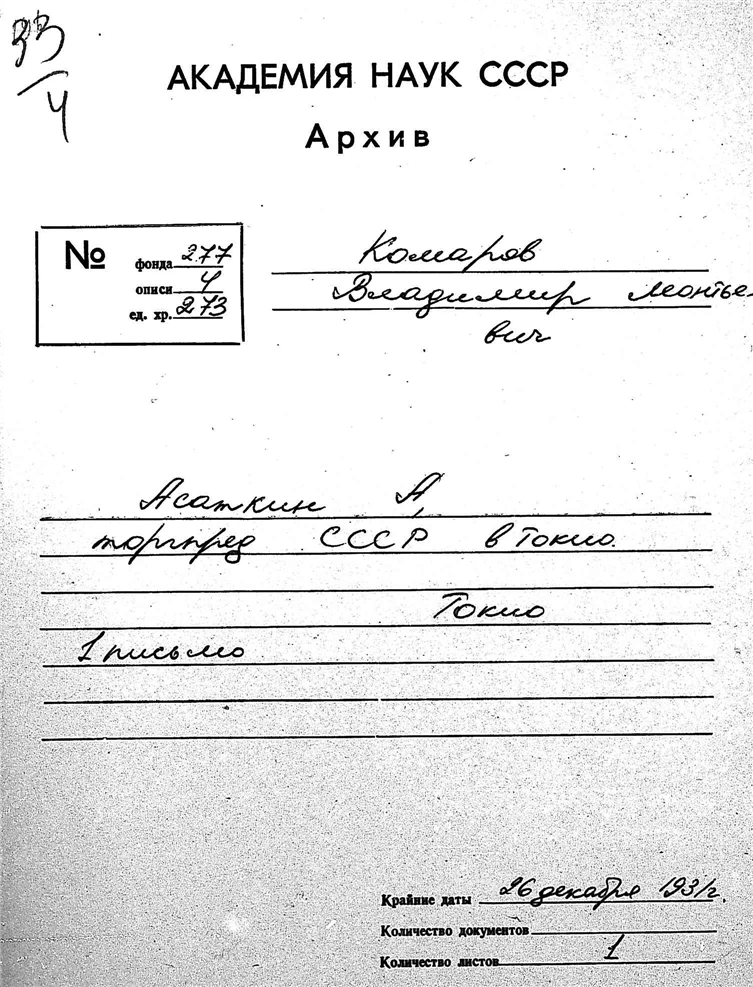 33/4
АКАДЕМИЯ НАУК СССР
Архив
№
фонда 277
описи 4
ед. хр. 273
Комаров
Владимир Леонтье-
вич
Асаткин А,
торгпред СССР в Токио.
Токио
1 письмо
Крайние даты 26 декабря 1931 г.
Количество документов
Количество листов 1